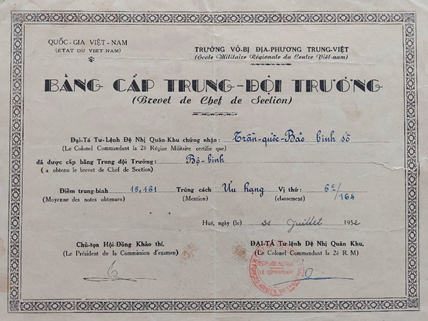 QUỐC-GIA VIỆT-NAM
(ÉTAT DU VIET-NAM)
TRƯỜNG VÕ-BỊ ĐỊA-PHƯƠNG TRUNG-VIỆT
(École Militaire Régionale du Centre Việt-nam)
BẰNG CẤP TRUNG-ĐỘI TRƯỞNG
(Brevet de Chef de Section)
Đại-Tá Tư-Lệnh Đệ Nhị Quân-Khu chứng nhận: Trần-quốc-Bảo binh số
(Le Colonel Commandant la 2è Région Militaire certifie que)
đã được cấp bằng Trung đội Trưởng: Bộ-binh
(a obtenu le brevet de Chef de Section)
Điểm trung-bình 15,161 Trúng cách Ưu hạng Vị thứ: 6e/164
(Moyenne des notes obtenues) (Mention) (classement)
Huế, ngày (le) 31 Juillet 1952
Chủ-tọa Hội-Đồng Khảo thí,
(Le Président de la Commission d'examen)
ĐẠI-TÁ Tư-lệnh Đệ Nhị Quân Khu,
(Le Colonel Commandant la 2è R. M)